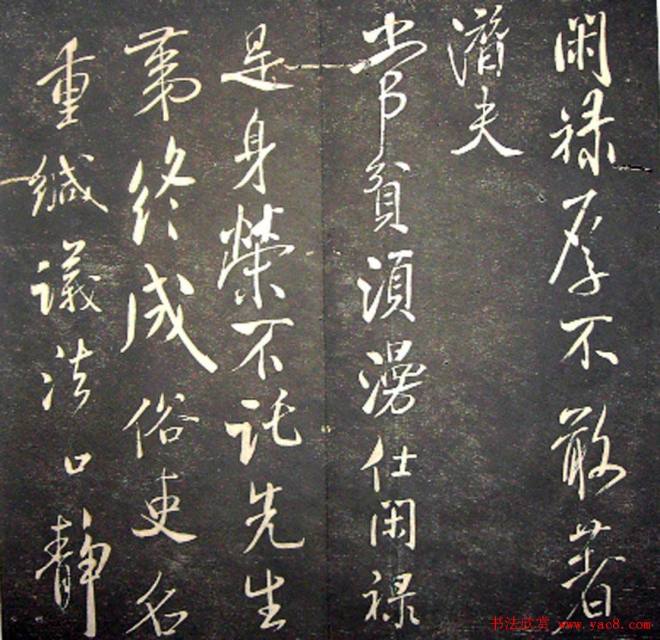 閑禄厚不敢著
潛夫
常貧須漫仕閑禄
是身榮不託先生
第終成俗吏名
重緘議法口靜
书法欣赏 www.yac8.com